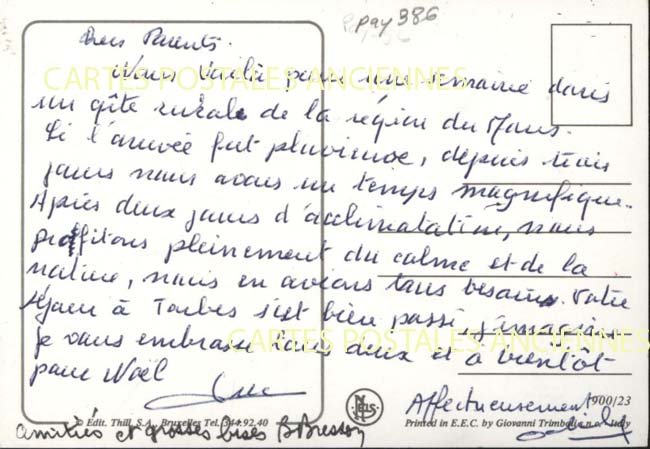 pay 386
Chers Parents.
Nous voilà pour une semaine dans
CARTES POSTALES ANCIENNES
un gîte rurale de la région du Mans.
Si l'arrivée fut pluvieuse, depuis trois
jours nous avons un temps magnifique.
Après deux jours d'acclimatation, nous
profitons pleinement du calme et de la
nature, nous en avions tous besoin. Votre
séjour à Tarbes s'est bien passé
CARTES POSTALES ANCIENNES
Je vous embrasse tous deux et à bientôt
pour Noël
Affectueusement
900/23
© Edit. Thill. S.A., Bruxelles Tel. 344.92.40
NELS
Printed in E.E.C. by Giovanni Trimboli Italy
amitiés et grosses bises B Bresson